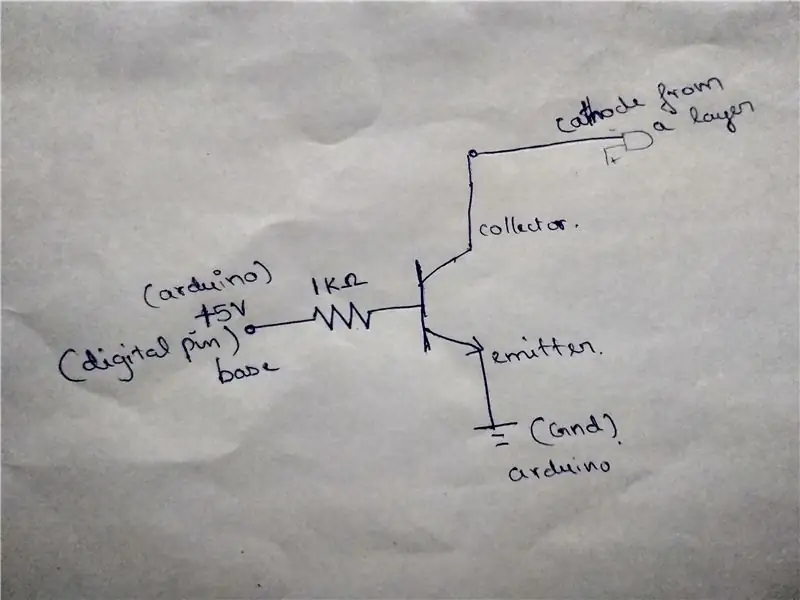 cathode from
a layer
collector.
1KΩ
(arduino)
+5V
(digital pin)
base
emitter.
(Gnd).
arduino
+